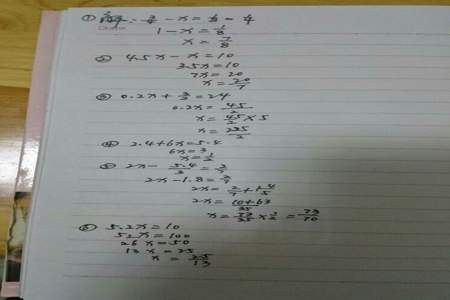 ① 解:
1 - x = 1/8
x = 7/8
② 4.5x - x = 10
3.5x = 10
7x = 20
x = 20/7
③ 0.2x + 3/2 = 24
0.2x = 45/2
x = 45/2 × 5
x = 225/2
④ 2.4 + 6x = 5.4
6x = 3
x = 1/2
⑤ 2x - 5.4/3 = 2/7
2x - 1.8 = 2/7
2x =
2x = (10+63)/35
x = 73/35 × 1/2 = 73/70
⑥ 5.2x = 10
52x = 100
26x = 50
13x = 25
x = 25/13